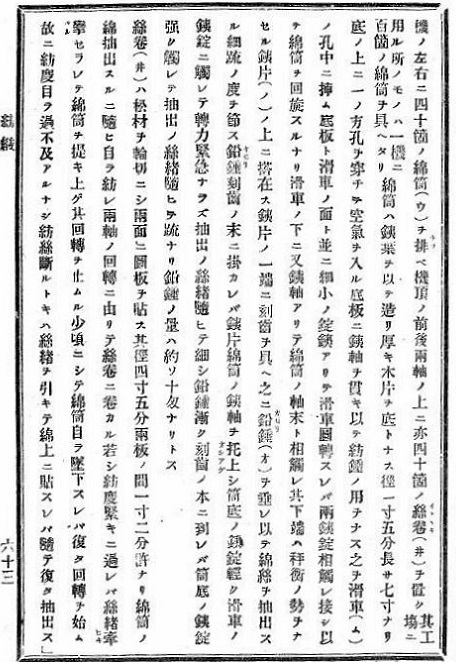 機ノ左右ニ四十箇ノ綿筒(ウ)ヲ排ベ機頂ノ前後兩軸ノ上ニ亦四十箇ノ絲卷(井)ヲ置ク其工塲ニ
用ル所ノモノハ一機ニ百箇ノ綿筒ヲ具ヘタリ綿筒ハ鐵葉ヲ以テ造リ厚キ木片ヲ底トナス徑一寸五分長サ七寸ナリ
底ノ上ニ一ノ方孔ヲ穿チテ空氣ヲ入ル底板ニ鐵軸ヲ貫キ以テ紡錘ノ用ヲナス之ヲ滑車(ム)
ノ孔中ニ挿ム底板ト滑車ノ面ト並ニ細小ノ錠鐵アリテ滑車圓轉スレバ兩鐵錠相觸レ接シ以
テ綿筒ヲ回旋スルナリ滑車ノ下ニ又鐵軸アリテ綿筒ノ軸末ト相觸レ其下端ハ秤衡ノ勢ヲナ
セル鐵片(ノ)ノ上ニ搭在ス鐵片ノ一端ニ刻齒ヲ具ヘ之ニ鉛錘(オ)ヲ垂レ以テ綿絲ヲ抽出ス
ル細疏ノ度ヲ節ス鉛錘刻齒ノ末ニ掛カレバ鐵片綿筒ノ鐵軸ヲ托上シ筒底ノ鐵錠輕ク滑車ノ
鐵錠ニ觸レテ轉力緊急ナラズ抽出ノ絲緒隨ヒテ細シ鉛錘漸ク刻齒ノ本ニ到レバ筒底ノ鐵錠
强ク觸レテ抽出ノ絲緒隨ヒテ疏ナリ鉛錘ノ量ハ約ソ十匁ナリトス
絲卷(井)ハ松材ヲ輪切ニシ兩面ニ圓板ヲ貼ス其徑四寸五分兩板ノ間一寸二分許ナリ綿筒ノ
綿抽出スルニ隨ヒ自ラ紡レ兩軸ノ回轉ニ由リテ絲卷ニ卷カル若シ紡度緊キニ過レバ絲緒牽
攣セラレテ綿筒ヲ提キ上ゲ其回轉ヲ止ムル少頃ニシテ綿筒自ラ墜下スレバ復タ回轉ヲ始ム
故ニ紡度目ラ過不及アルナシ紡絲斷ルトキハ絲緒ヲ引キテ綿上ニ貼スレバ隨テ復タ抽出ス」
六十三